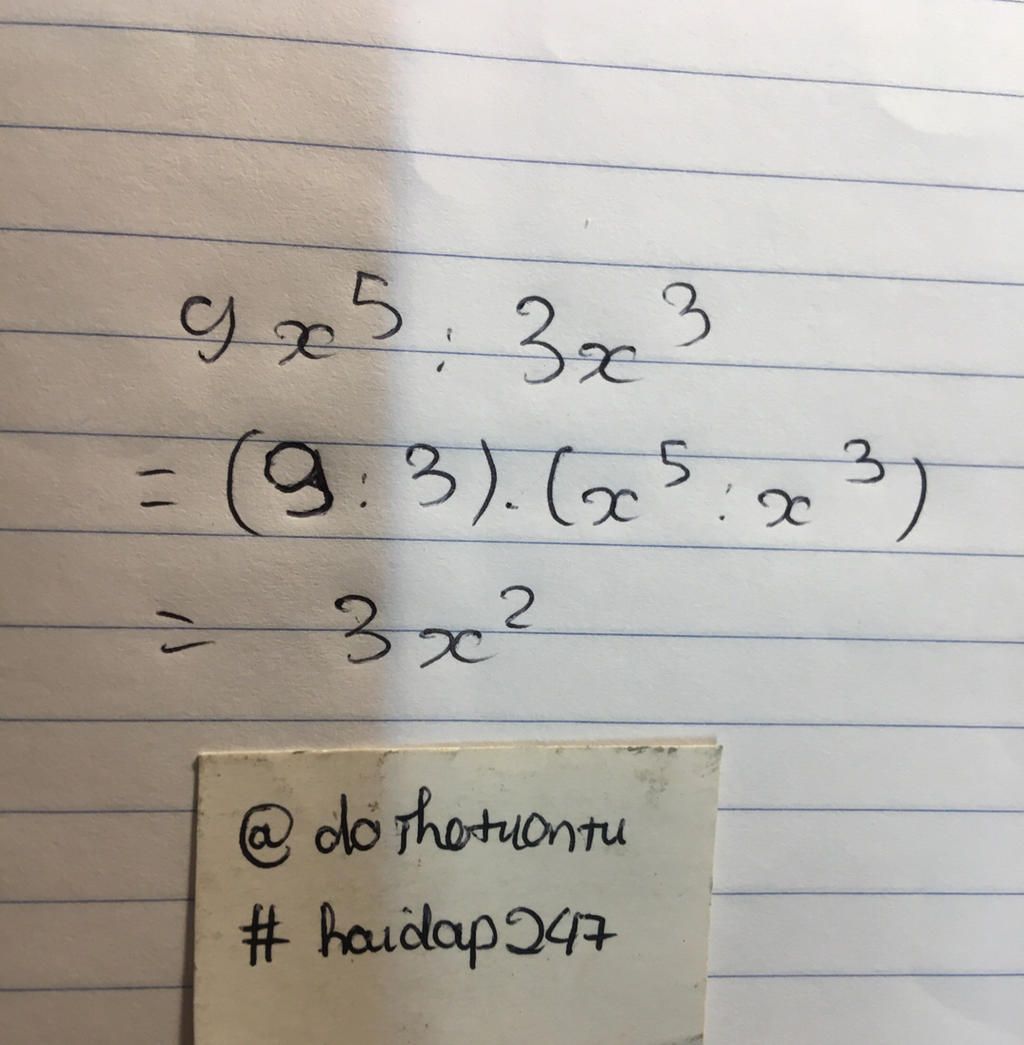 9x⁵ : 3x³
= (9 : 3) . (x⁵ : x³)
= 3x²
@dothetuontu
# hoidap247